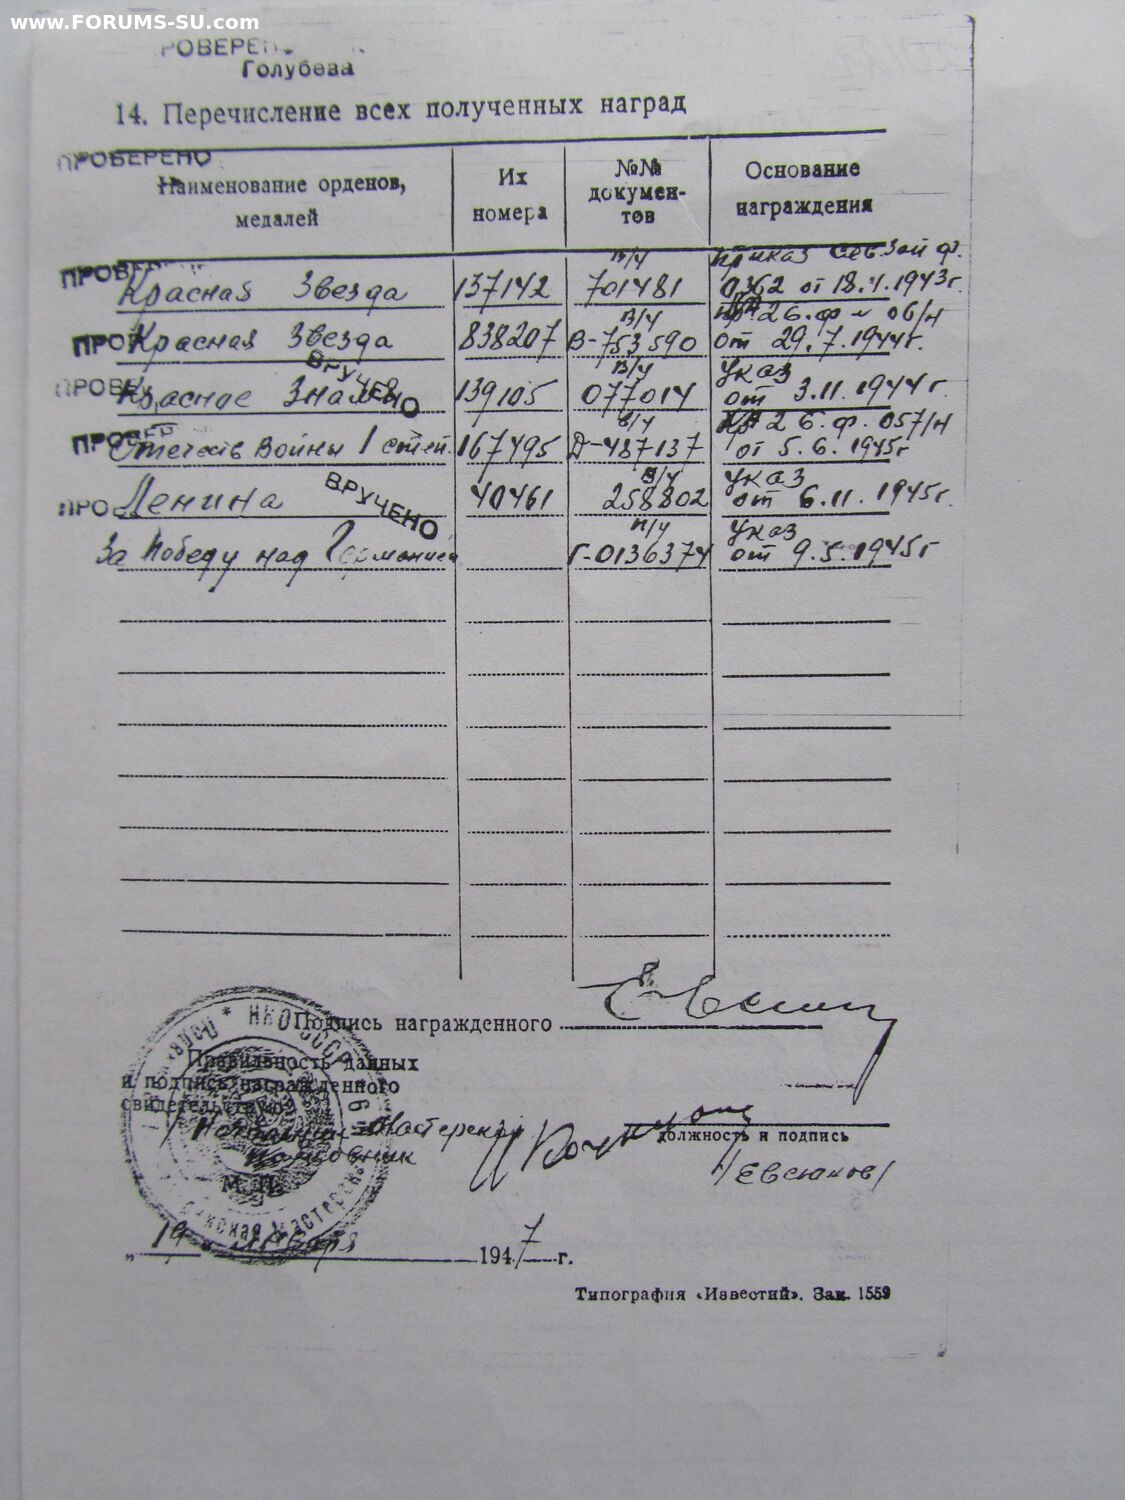 www.FORUMS-SU.com
РОВЕРЕНО
Голубева
14. Перечисление всех полученных наград
ПРОВЕРЕНО
Наименование орденов, медалей
Их номера
№№ докумен-тов
Основание награждения
ПРОВЕРЕ
Красная Звезда 137142 в/ч 701481 приказ Сев. Зап ф. 0362 от 18.4.1943г.
ПРО
Красная Звезда 838207 в/ч В-753590 пр. 26.ф-л 06/н от 29.7.1944г.
ПРОВЕ
Красное Знамя 139105 в/ч 077014 Указ от 3.11.1944г.
ВРУЧЕНО
ПРОВЕР
Отечеств Войны 1 степ. 167495 в/ч Д-487137 пр 26.ф.057/н от 5.6.1945г
ПРО
Ленина 40461 в/ч 258802 Указ от 6.11.1945г.
ВРУЧЕНО
За Победу над Германией п/у Г-0136374 Указ от 9.5.1945г
Подпись награжденного
Правильность данных
и подписи награжденного
свидетельствую
Начальник мастерской
Полковник
должность и подпись
/Евсюков/
М. П.
„19“ января 1947 г.
Типография «Известий». Зак. 1559